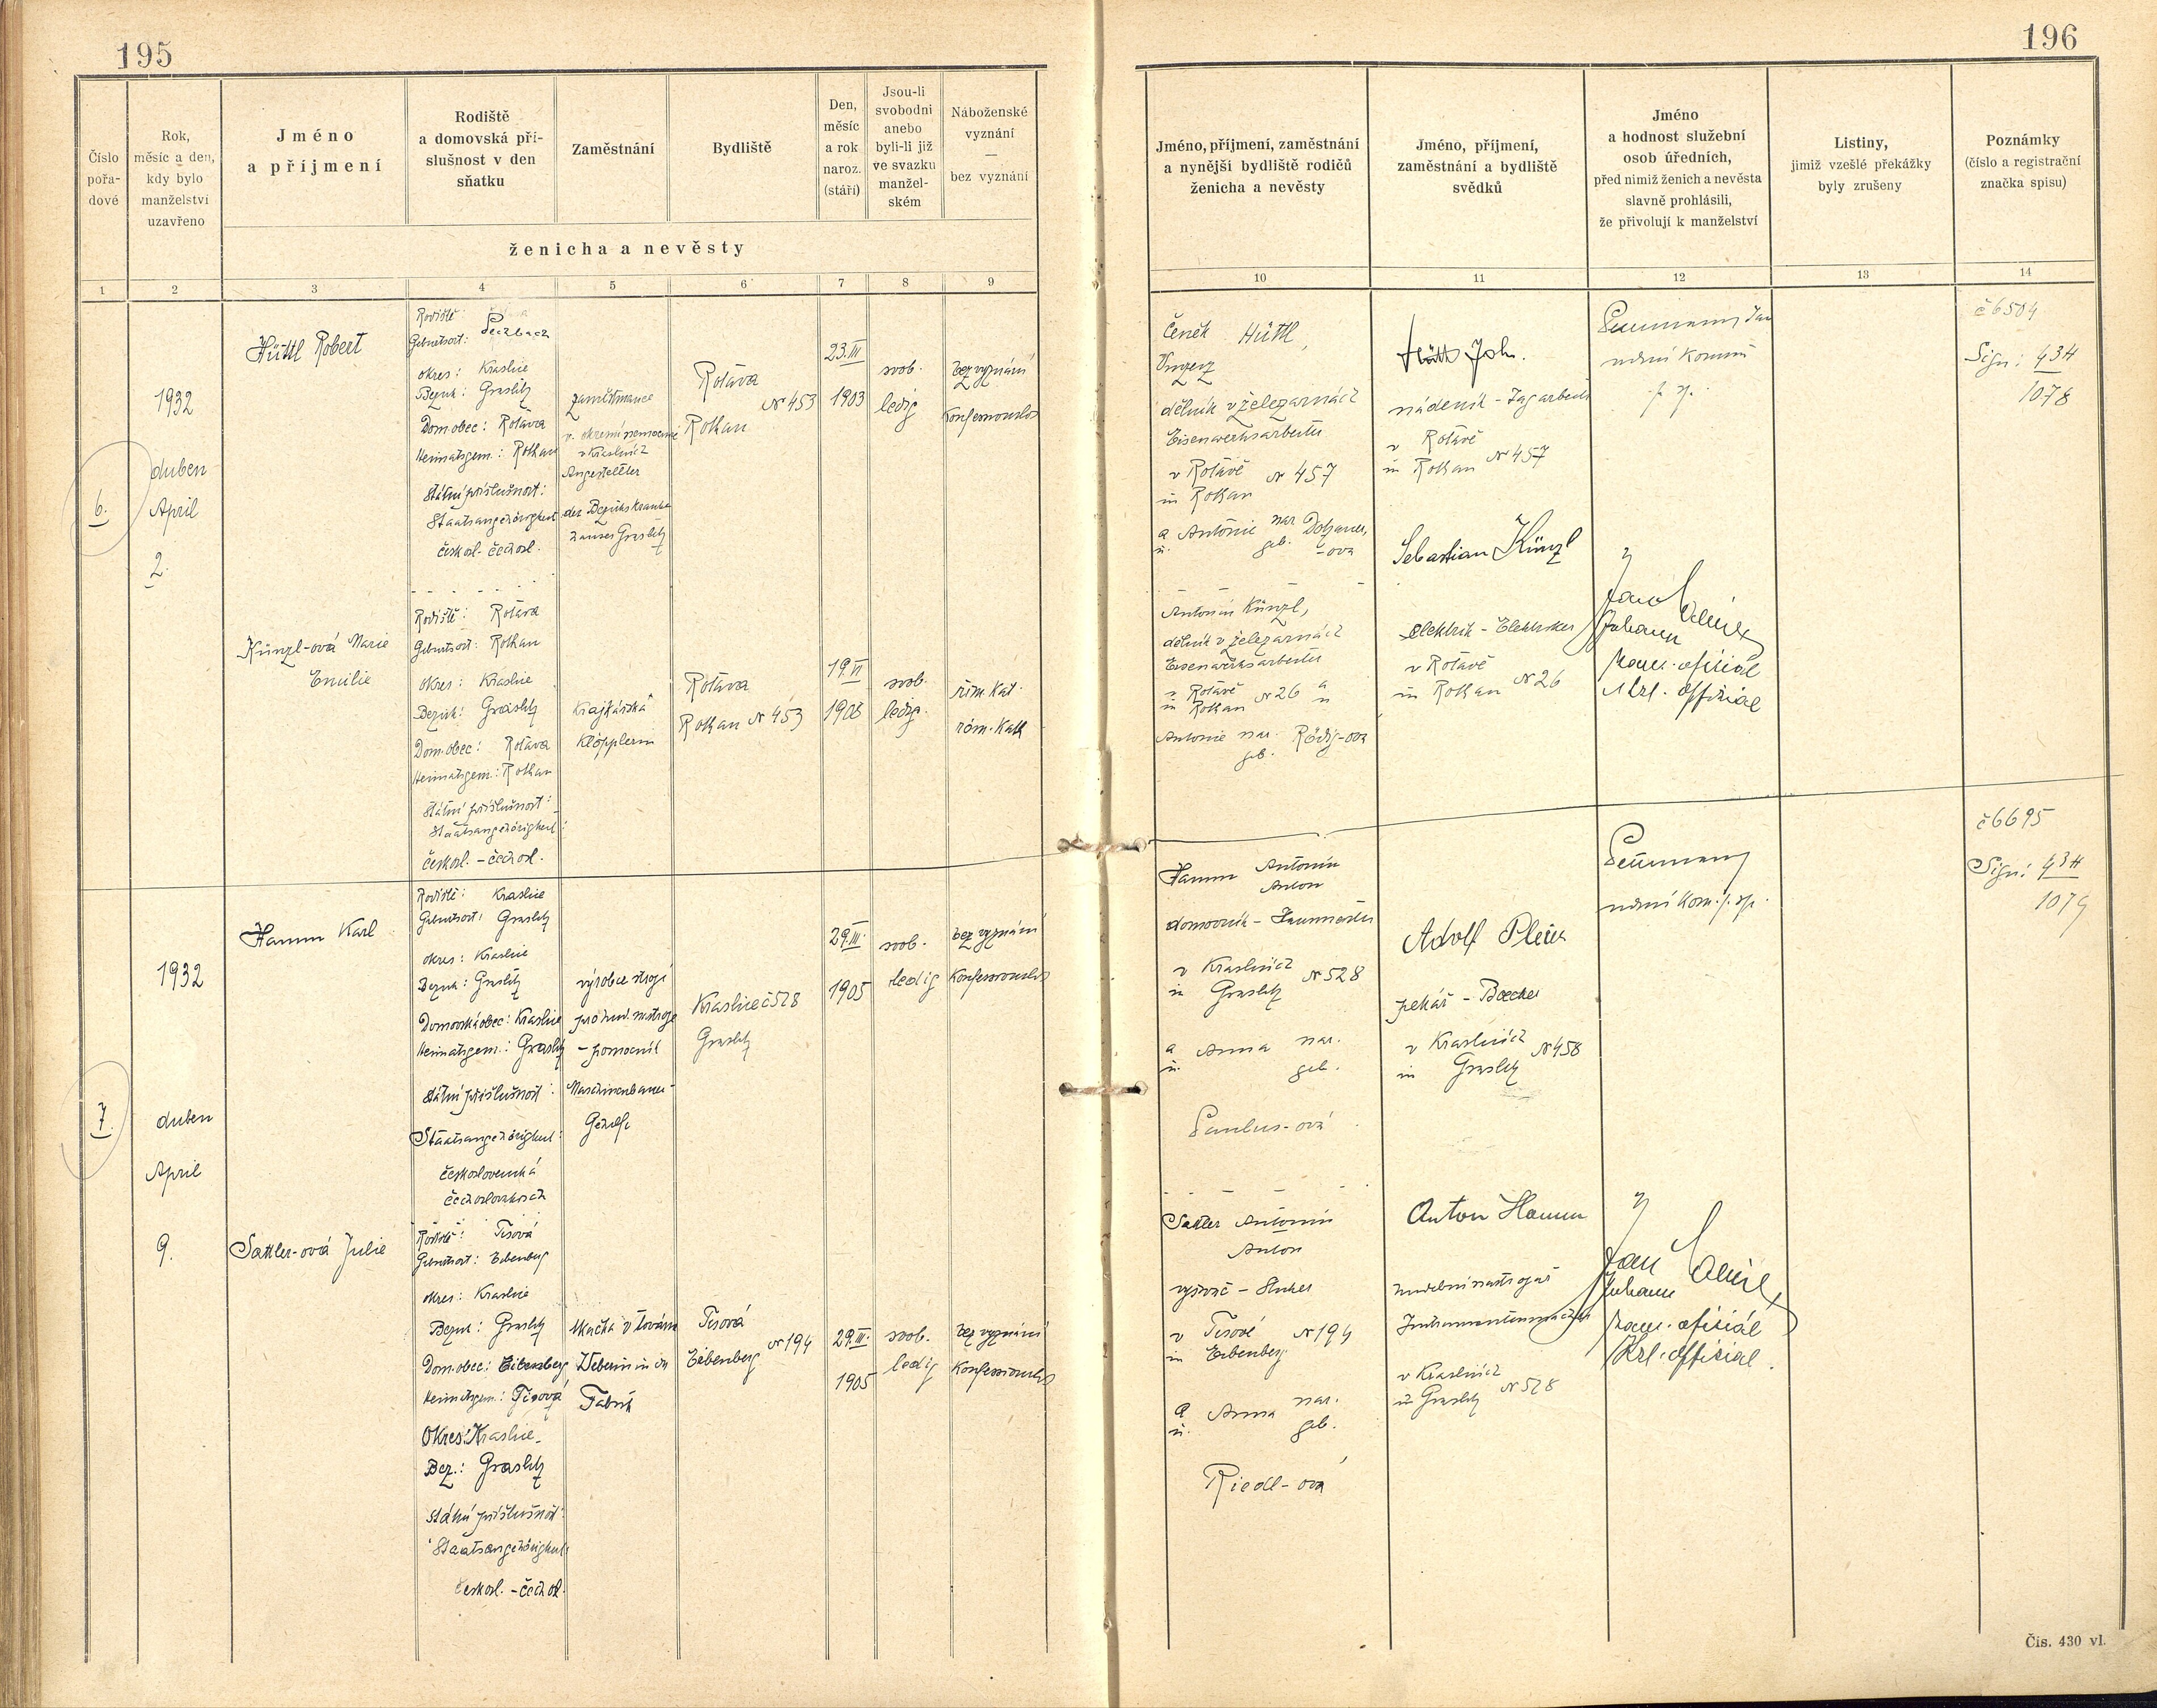 195
Číslo
pořa-
dové
Rok,
měsíc a den,
kdy bylo
manželství
uzavřeno
Jméno
a příjmení
Rodiště
a domovská pří-
slušnost v den
sňatku
Zaměstnání
Bydliště
Den,
měsíc
a rok
naroz.
(stáří)
Jsou-li
svobodni
anebo
byli-li již
ve svazku
manžel-
ském
Náboženské
vyznání
—
bez vyznání
ženicha a nevěsty
1 2 3 4 5 6 7 8 9
6.
1932
duben
April
2.
Hüttl Robert
Rodiště:
Geburtsort:
okres: Kraslice
Bezirk: Graslitz
Dom. obec: Rotava
Heimatsgem.: Rothau
Státní příslušnost:
Staatsangehörigkeit
českosl.- čechosl.
zaměstnanec
v okresní nemocnici
v Kraslicích
Angestellter
des Bezirkskranken
hauses Graslitz
Rotava
№ 453
Rothau
23.III
1903
svob.
ledig
bez vyznání
konfessionslos
Künzl-ová Marie
Emilie
Rodiště: Rotava
Geburtsort: Rothau
okres: Kraslice
Bezirk: Graslitz
Dom. obec: Rotava
Heimatsgem.: Rothau
Státní příslušnost:
Staatsangehörigkeit:
českosl. - čechosl.
krajkářská
Klöpplerin
Rotava
Rothau № 453
19.VI
1908
svob.
ledig.
řím. kat.
röm. kath
7.
1932
duben
April
9.
Hamm Karl
Rodiště: Kraslice
Geburtsort: Graslitz
okres: Kraslice
Bezirk: Graslitz
Domovská obec: Kraslice
Heimatsgem.: Graslitz
Státní příslušnost:
Staatsangehörigkeit:
československá
čechoslovakisch
výrobce strojů
pro hud. nástroje
- pomocník
Maschinenbauer-
Gehilfe
Kraslice č 528
Graslitz
29.III.
1905
svob.
ledig
bez vyznání
konfessionslos
Sattler-ová Julie
Rodiště: Tisová
Geburtsort: Eibenberg
okres: Kraslice
Bezirk: Graslitz
Dom. obec: Eibenberg
Heimatsgem.: Tisová
Okres: Kraslice
Bez.: Graslitz
Státní příslušnost:
Staatsangehörigkeit:
českosl. - čechosl.
tkačka v továrně
Weberin in der
Fabrik
Tisová
Eibenberg № 194
29.III.
1905
svob.
ledig
bez vyznání
konfessionslos
196
Jméno, příjmení, zaměstnání
a nynější bydliště rodičů
ženicha a nevěsty
Jméno, příjmení,
zaměstnání a bydliště
svědků
Jméno
a hodnost služební
osob úředních,
před nimiž ženich a nevěsta
slavně prohlásili,
že přivolují k manželství
Listiny,
jimiž vzešlé překážky
byly zrušeny
Poznámky
(číslo a registrační
značka spisu)
10 11 12 13 14
Čeněk Hüttl,
Vinzenz
dělník v železárnách
Eisenwerksarbeiter
v Rotavě № 457
in Rothau
a Antonie nar.
u. geb.
-ova
Hüttl Joh.
nádeník - Tagarbeiter
v Rotavě
in Rothau № 457
Sebastian Künzl
č 6504
Sign: 434
1078
Antonín Künzl,
dělník v železárnách
Eisenwerksarbeiter
v Rotavě № 26 a
in Rothau u
Antonie nar. Rödig-ova
geb.
elektrik - Elektriker
v Rotavě
in Rothau № 26
Johann
kanc. oficiál
Kzl. offizial
Hamm Antonín
Anton
domovník - Hausmeister
v Kraslicích
in Graslitz № 528
a Anna nar.
u. geb.
Paulus-ová
Adolf
pekař - Baecker
v Kraslicích
in Graslitz № 458
č 6695
Sign: 434
1079
Sattler Antonín
Anton
vyšívač - Sticker
v Tisové № 194
in Eibenberg
a Anna nar.
u. geb.
Riedl-ová
Anton Hamm
hudební nástrojař
Instrumentenmacher
v Kraslicích
in Graslitz № 528
Jan
Johann
kanc. oficiál
Kzl. offizial.
Čís. 430 vl.